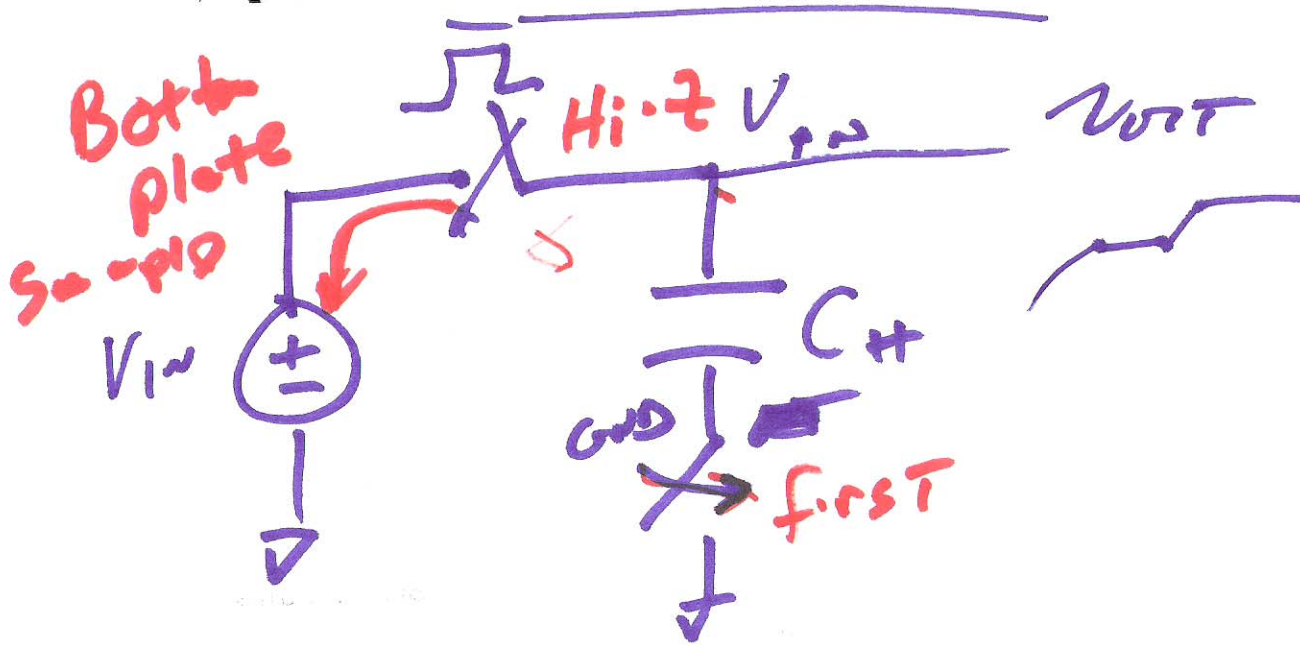 Bott
plate
Sample
Hi-Z
VIN
VOUT
VIN
+
-
CH
GND
first